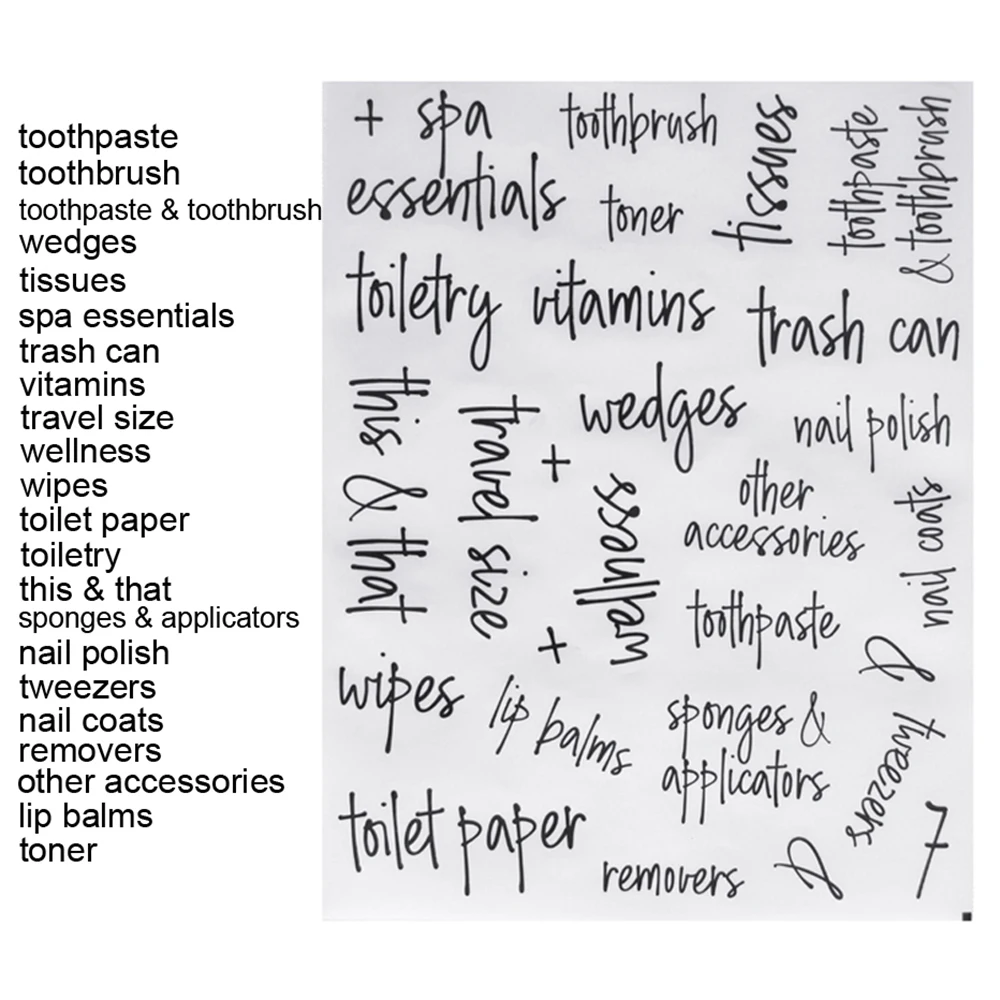 toothpaste
toothbrush
toothpaste & toothbrush
wedges
tissues
spa essentials
trash can
vitamins
travel size
wellness
wipes
toilet paper
toiletry
this & that
sponges & applicators
nail polish
tweezers
nail coats
removers
other accessories
lip balms
toner
+ spa
essentials
toothbrush
toner
tissues
toothpaste
& toothbrush
toiletry
vitamins
trash can
this & that
travel size
+
wedges
nail polish
other
accessories
nail coats
wellness
+
toothpaste
&
wipes
lip balms
sponges &
applicators
tweezers
toilet paper
removers
&
7